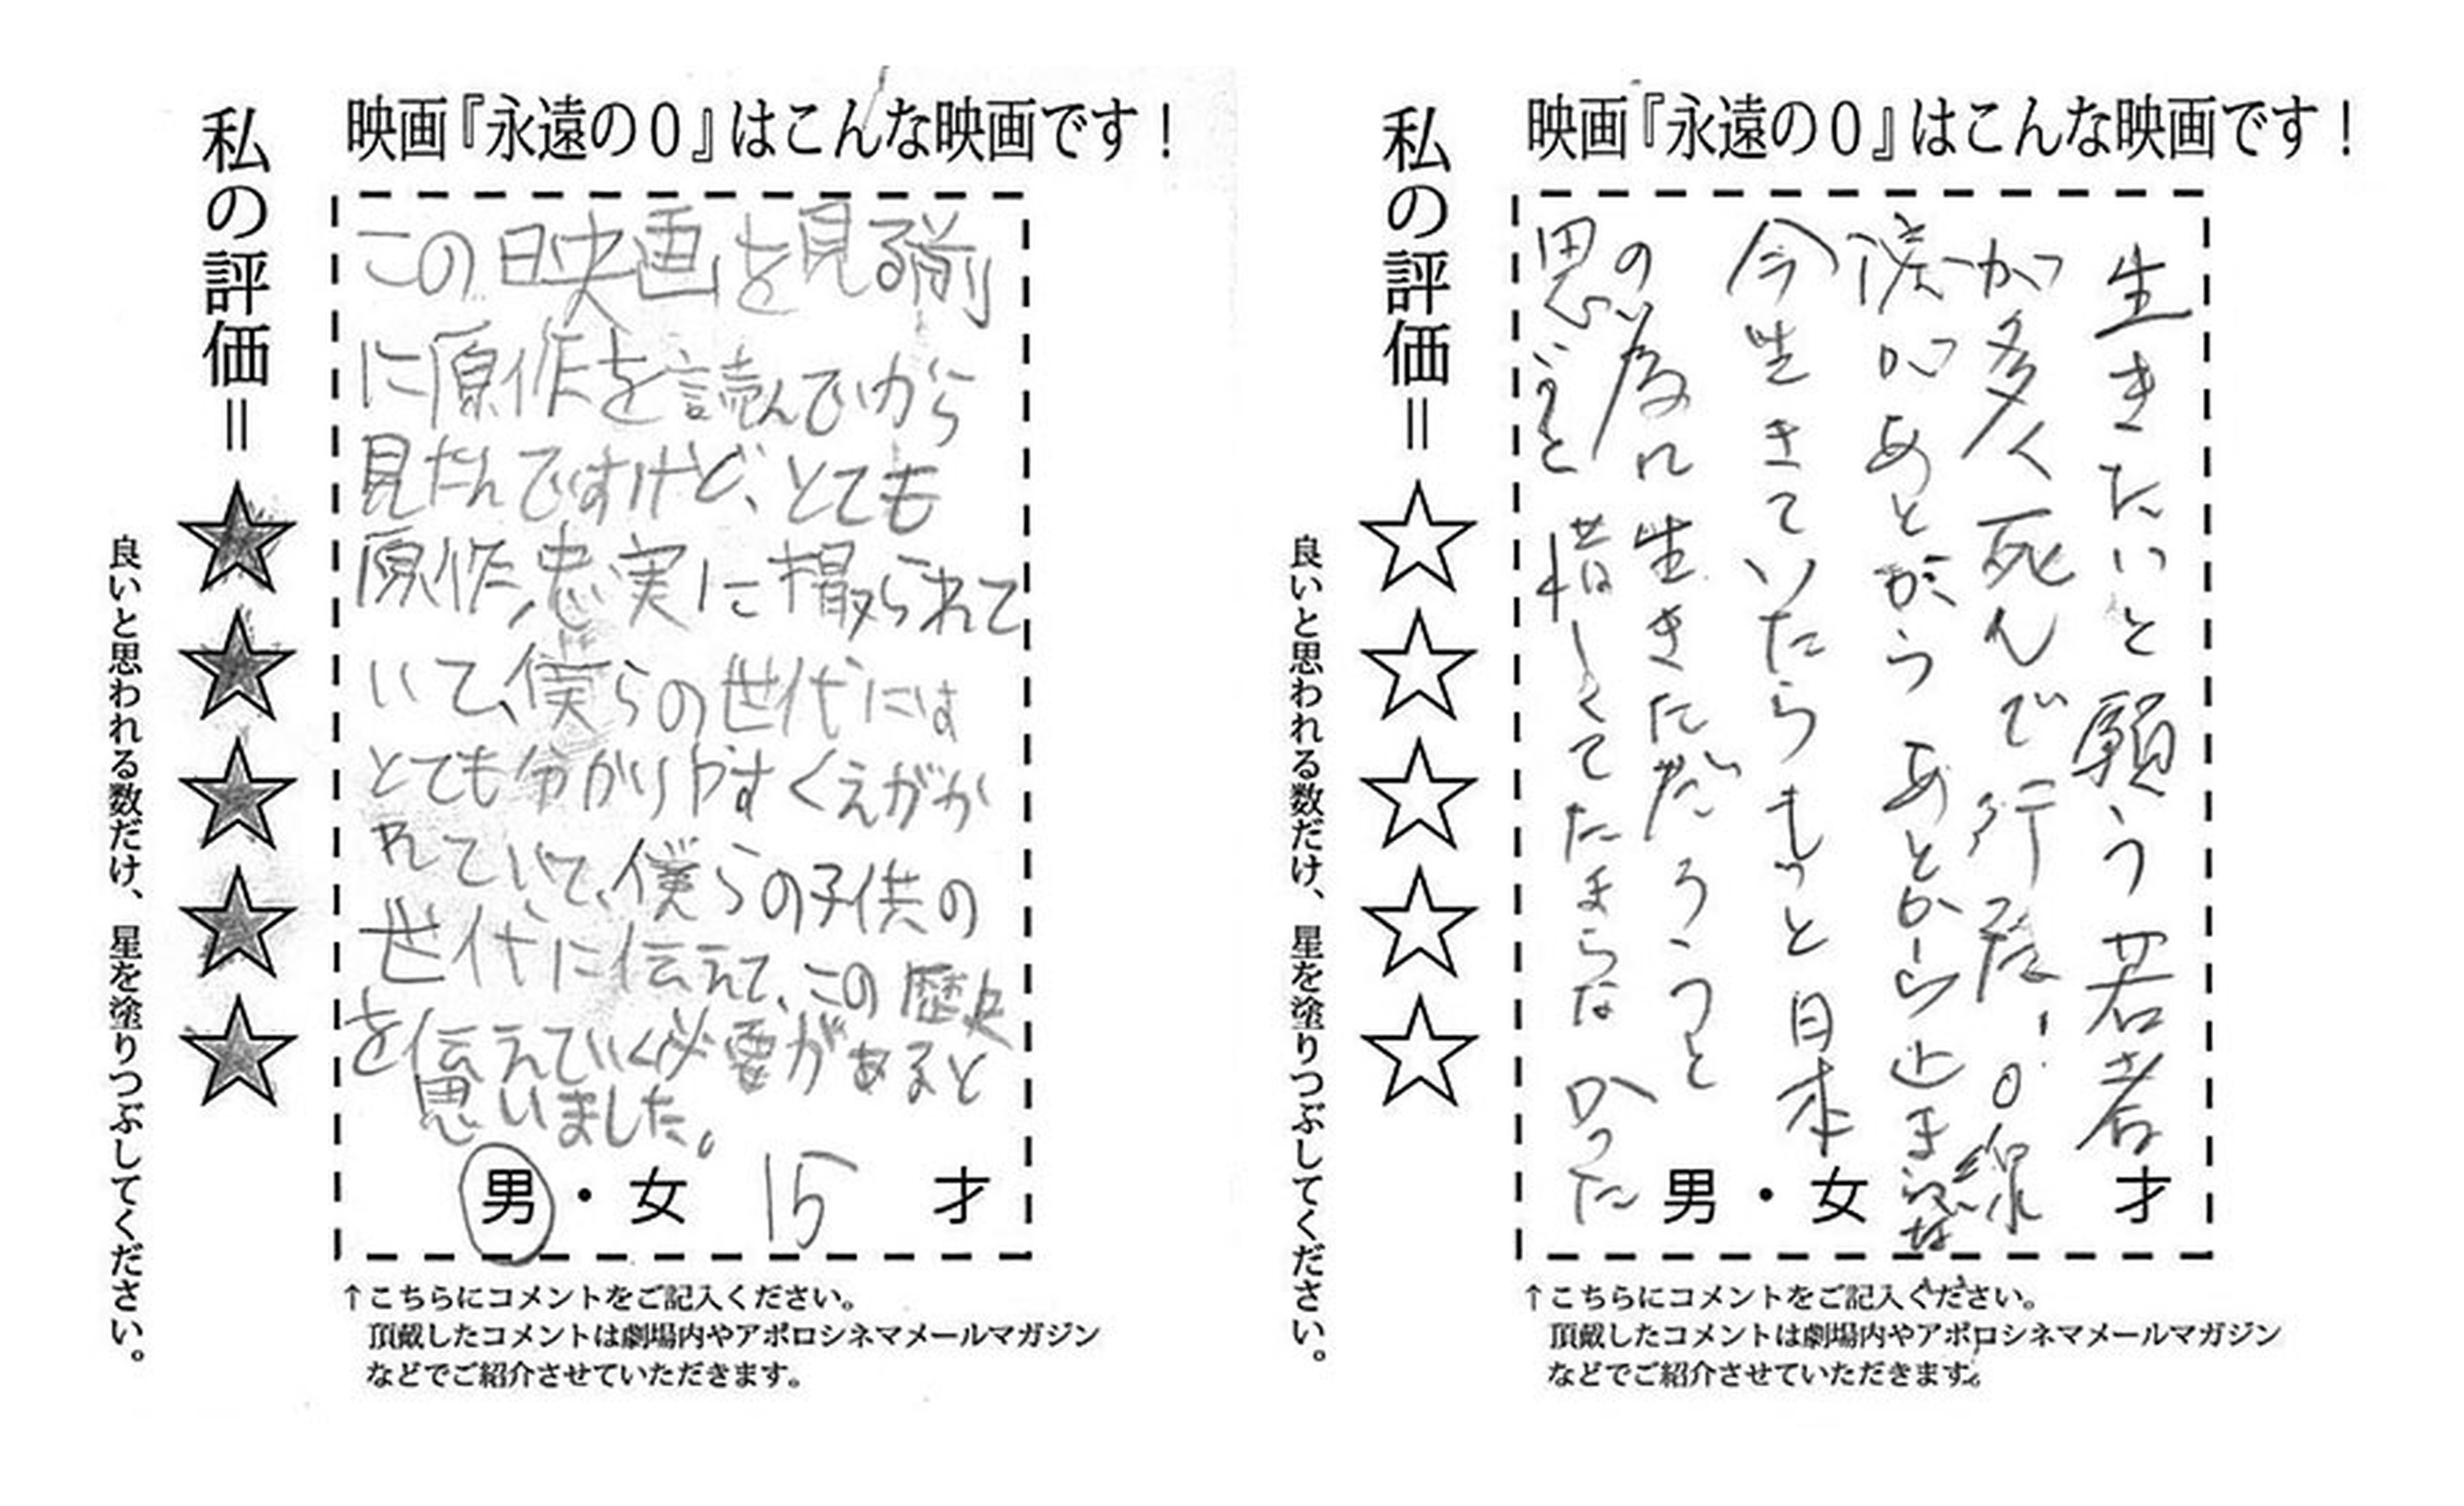 映画『永遠の０』はこんな映画です！
この映画を見る前
に原作を読んでから
見たんですけど、とても
原作忠実に撮られて
いて、僕らの世代には
とても分かりやすくえがか
れていて、僕らの子供の
世代に伝えて、この歴史
を伝えていく必要があると
思いました。
男・女 15 才
↑こちらにコメントをご記入ください。
頂戴したコメントは劇場内やアポロシネマメールマガジン
などでご紹介させていただきます。
私の評価＝★★★★★
良いと思われる数だけ、星を塗りつぶしてください。
映画『永遠の０』はこんな映画です！
生きたいと願う若者
が多く死んで行った
涙があとからあとから止まらな
今生きていたらもっと日本
の為に生きただろうと
思うと惜しくてたまらなかった
男・女 才
↑こちらにコメントをご記入ください。
頂戴したコメントは劇場内やアポロシネマメールマガジン
などでご紹介させていただきます。
私の評価＝☆☆☆☆☆
良いと思われる数だけ、星を塗りつぶしてください。